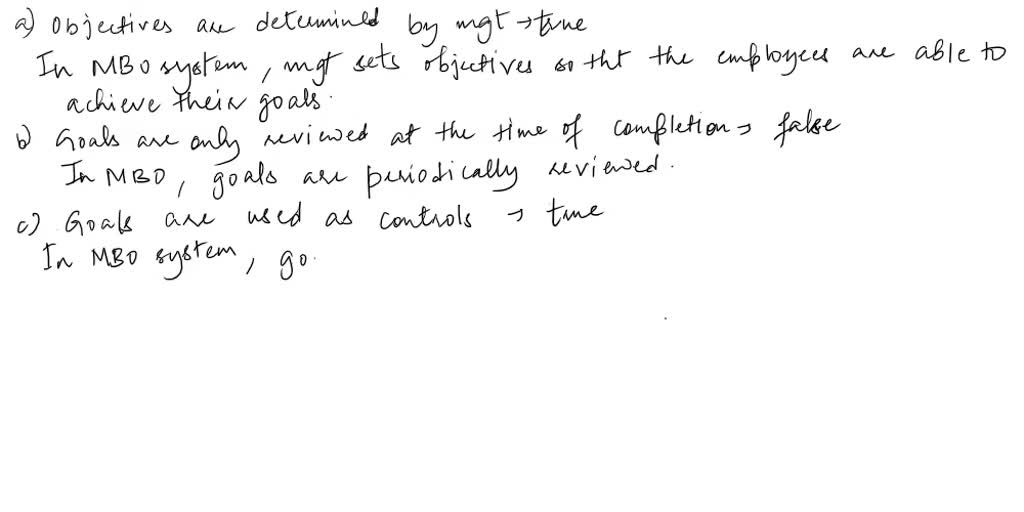 a) Objectives are determined by mgt → true
In MBO system, mgt sets objectives so tht the employees are able to
achieve their goals.
b) Goals are only reviewed at the time of completion → false
In MBO, goals are periodically reviewed.
c) Goals are used as controls → true
In MBO system, go.